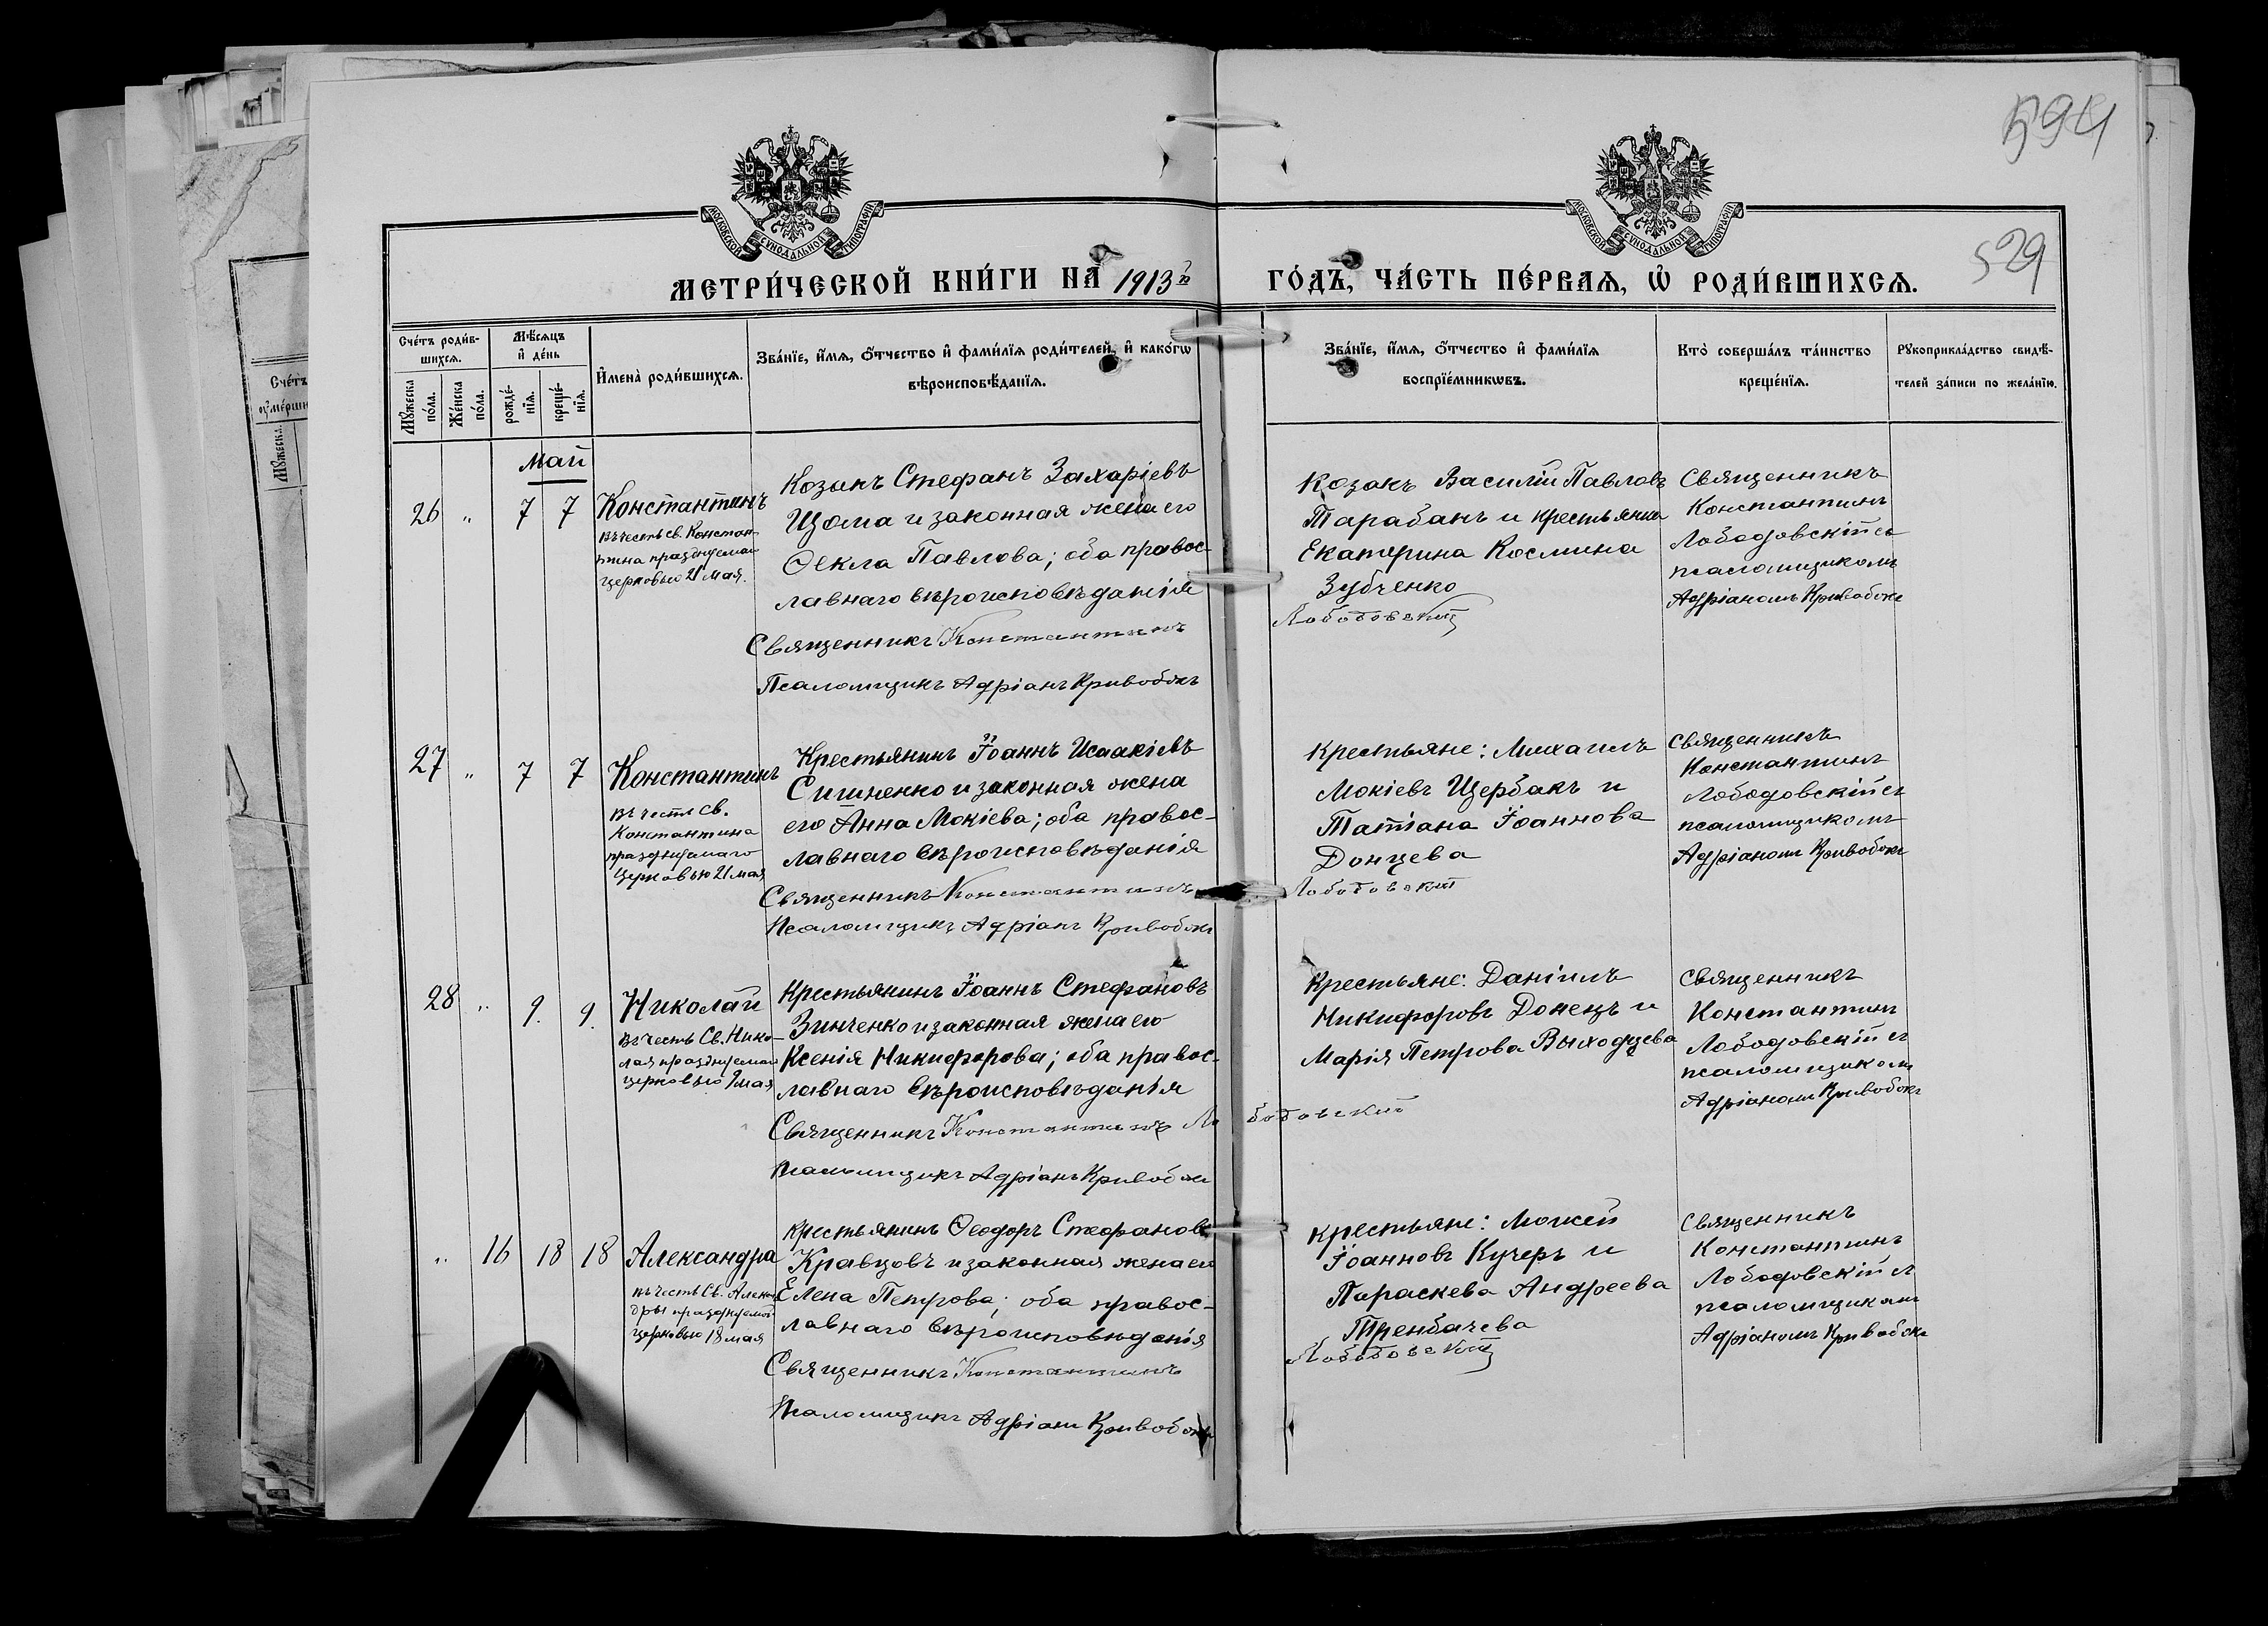 594
529
МОСКОВСКОЙ СУНОДАЛЬНОЙ ТИПОГРАФІИ
МОСКОВСКОЙ СУНОДАЛЬНОЙ ТИПОГРАФІИ
МЕТРИ́ЧЕСКОЙ КНИ́ГИ НА 1913й ГО́ДЪ, ЧА́СТЬ ПЕ́РВАѦ, Ѡ҆ РОДИ́ВШИХСѦ.
Сче́тъ роди́в-
шихсѧ.
Мꙋ́жеска по́ла.
Же́нска по́ла.
Мѣ́сѧцъ
и҆ де́нь
рожде́-
нїѧ.
креще́-
нїѧ.
И҆мена̀ роди́вшихсѧ.
Зва́нїе, и҆́мѧ, ѻ҆́тчество и҆ фами́лїѧ роди́телей, и҆ како́гѡ
вѣроисповѣ́данїѧ.
Зва́нїе, и҆́мѧ, ѻ҆́тчество и҆ фами́лїѧ
воспрїе́мникѡвъ.
Кто̀ соверша́лъ та́инство
креще́нїѧ.
Рꙋкоприкла́дство свидѣ́-
телей за́писи по жела́нїю.
Май
26 " 7 7 Константинъ
въ честь св. Констан-
тина празднуемаго
церковью 21 мая.
Козакъ Стефанъ Захаріевъ
Щома и законная жена его
Ѳекла Павлова; оба правос-
лавнаго вѣроисповѣданія
Священникъ Константинъ
Лободовскій
Псаломщикъ Адріанъ Кривобокъ
Козакъ Василій Павловъ
Тарабанъ и крестьянка
Екатерина Космина
Зубченко
Священникъ
Константинъ
Лободовскій съ
псаломщикомъ
Адріаномъ Кривобокъ
27 " 7 7 Константинъ
въ честь св.
Константина
празднуемаго
церковью 21 мая
Крестьянинъ Іоаннъ Исаакіевъ
Ситненко и законная жена
его Анна Мокіева; оба правос-
лавнаго вѣроисповѣданія
Священникъ Константинъ
Лободовскій
Псаломщикъ Адріанъ Кривобокъ
Крестьяне: Михаилъ
Мокіевъ Щербакъ и
Татіана Іоаннова
Донцева
Священникъ
Константинъ
Лободовскій съ
псаломщикомъ
Адріаномъ Кривобокъ
28 " 9. 9. Николай
въ честь Св. Нико-
лая празднуемаго
церковью 9 мая
Крестьянинъ Іоаннъ Стефановъ
Зинченко и законная жена его
Ксенія Никифорова; оба правос-
лавнаго вѣроисповѣданія
Священникъ Константинъ Лободовскій
Псаломщикъ Адріанъ Кривобокъ
Крестьяне: Даніилъ
Никифоровъ Донецъ и
Марія Петрова Выходцева
Священникъ
Константинъ
Лободовскій съ
псаломщикомъ
Адріаномъ Кривобокъ
" 16 18 18 Александра
въ честь Св. Алексан-
дры празднуемой
церковью 18 мая
Крестьянинъ Ѳеодоръ Стефановъ
Кравцовъ и законная жена его
Елена Петрова; оба правос-
лавнаго вѣроисповѣданія
Священникъ Константинъ
Лободовскій
Псаломщикъ Адріанъ Кривобокъ
Крестьяне: Моисей
Іоанновъ Кучеръ и
Параскева Андреева
Тренбачева
Священникъ
Константинъ
Лободовскій съ
псаломщикомъ
Адріаномъ Кривобокъ
Сче́тъ
Мꙋ́жеска